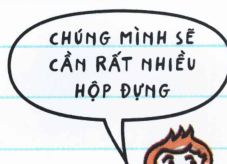 CHÚNG MÌNH SẼ
CẦN RẤT NHIỀU
HỘP ĐỰNG